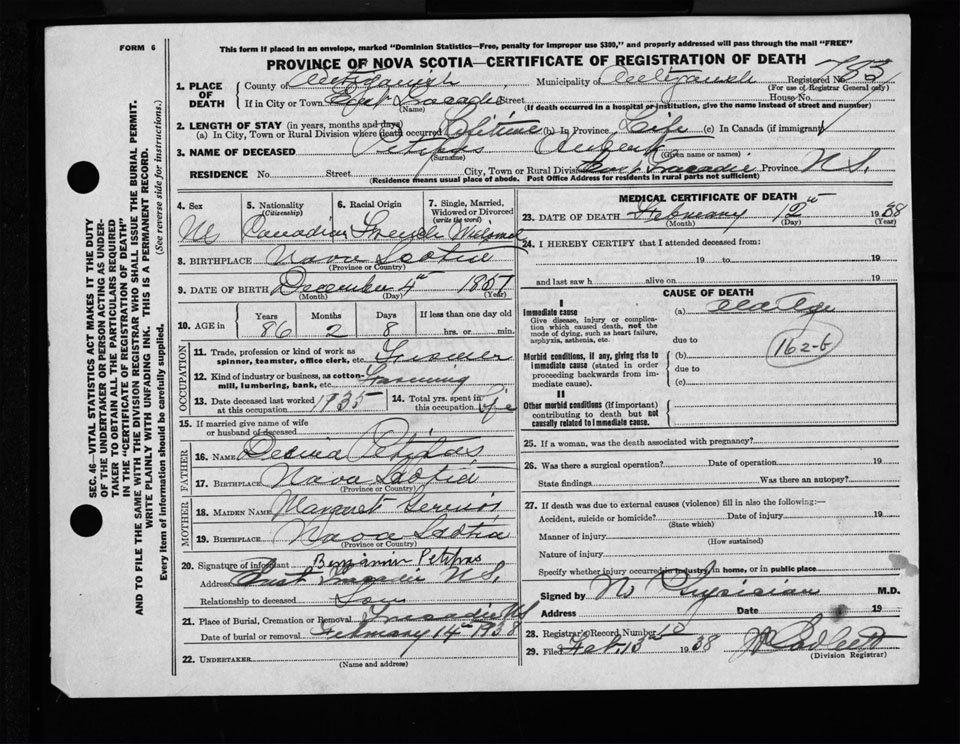 FORM 6
This form if placed in an envelope, marked "Dominion Statistics—Free, penalty for improper use $300," and properly addressed will pass through the mail "FREE"
PROVINCE OF NOVA SCOTIA—CERTIFICATE OF REGISTRATION OF DEATH
1. PLACE OF DEATH County of Antigonish Municipality of Antigonish Registered No. 783
(For use of Registrar General only)
If in City or Town East Tracadie Street House No.
(Name) (If death occurred in a hospital or institution, give the name instead of street and number)
2. LENGTH OF STAY (in years, months and days)
(a) In City, Town or Rural Division where death occurred Lifetime (b) In Province Life (c) In Canada (if immigrant)
3. NAME OF DECEASED Petipas
(Surname) (Given name or names)
RESIDENCE No. Street City, Town or Rural Division East Tracadie Province N.S.
(Residence means usual place of abode. Post Office Address for residents in rural parts not sufficient)
4. Sex
5. Nationality (Citizenship)
6. Racial Origin
7. Single, Married, Widowed or Divorced (write the word)
M Canadian French Widowed
8. BIRTHPLACE Nova Scotia
(Province or Country)
9. DATE OF BIRTH December 4th 1857
(Month) (Day) (Year)
10. AGE in Years Months Days If less than one day old
86 2 8 hrs. or min.
OCCUPATION
11. Trade, profession or kind of work as spinner, teamster, office clerk, etc. Farmer
12. Kind of industry or business, as cotton-mill, lumbering, bank, etc. Farming
13. Date deceased last worked at this occupation 1935 14. Total yrs. spent in this occupation Life
15. If married give name of wife or husband of deceased
FATHER
16. NAME Petipas
17. BIRTHPLACE Nova Scotia
(Province or Country)
MOTHER
18. MAIDEN NAME Margaret
19. BIRTHPLACE Nova Scotia
(Province or Country)
20. Signature of informant Benjamin Petipas
Address East Tracadie N.S.
Relationship to deceased Son
21. Place of Burial, Cremation or Removal Tracadie NS
Date of burial or removal February 14th 1938
22. UNDERTAKER
(Name and address)
MEDICAL CERTIFICATE OF DEATH
23. DATE OF DEATH February 12th 1938
(Month) (Day) (Year)
24. I HEREBY CERTIFY that I attended deceased from:
19 to 19
and last saw h alive on 19
CAUSE OF DEATH
I
Immediate cause
Give disease, injury or complication which caused death, not the mode of dying, such as heart failure, asphyxia, asthenia, etc.
(a) Old Age
due to
162-b
Morbid conditions, if any, giving rise to immediate cause (stated in order proceeding backwards from immediate cause).
(b)
due to
(c)
II
Other morbid conditions (if important) contributing to death but not causally related to immediate cause.
25. If a woman, was the death associated with pregnancy?
26. Was there a surgical operation? Date of operation 19
State findings Was there an autopsy?
27. If death was due to external causes (violence) fill in also the following:—
Accident, suicide or homicide? Date of injury 19
(State which)
Manner of injury
(How sustained)
Nature of injury
Specify whether injury occurred in industry, in home, or in public place
Signed by No Physician M.D.
Address Date 19
28. Registrar's Record Number 10
29. Filed Feb. 13th 1938
(Division Registrar)
SEC. 46—VITAL STATISTICS ACT MAKES IT THE DUTY
OF THE UNDERTAKER OR PERSON ACTING AS UNDERTAKER TO OBTAIN ALL THE PARTICULARS REQUIRED
IN THE "CERTIFICATE OF REGISTRATION OF DEATH"
AND TO FILE THE SAME WITH THE DIVISION REGISTRAR WHO SHALL ISSUE THE BURIAL PERMIT.
WRITE PLAINLY WITH UNFADING INK. THIS IS A PERMANENT RECORD.
Every item of information should be carefully supplied. (See reverse side for instructions.)